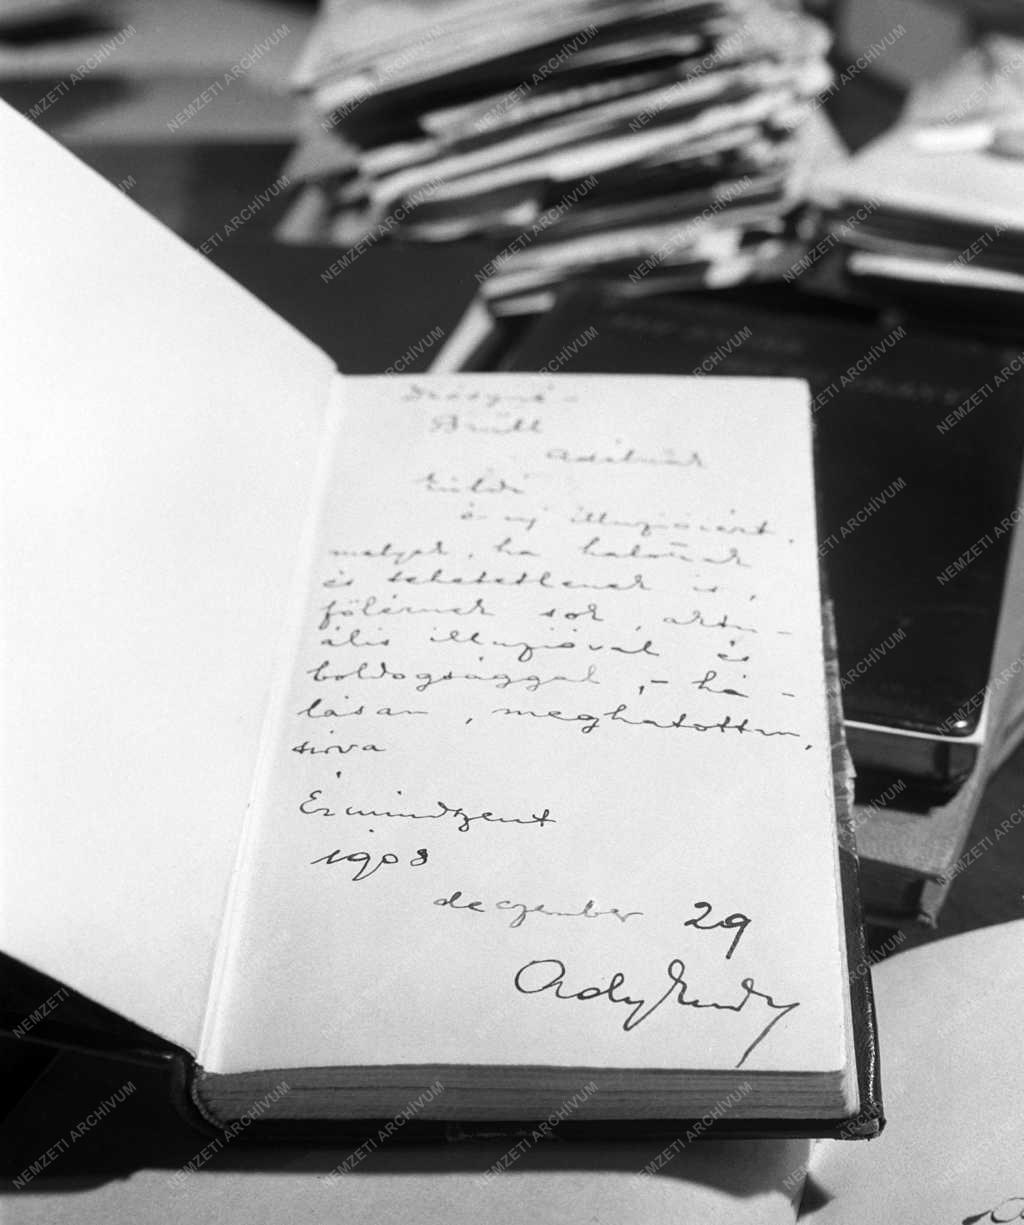 Diósyné-
Brüll
Adélnak
küldi
és új illuziókért,
melyek, ha halottak
és tehetetlenek is,
fölérnek sok, aktu-
ális illuzióval és
boldogsággal,- há-
lásan, meghatottan,
sirva
Érmindszent
1908
deczember 29
Ady Endre
NEMZETI ARCHÍVUM